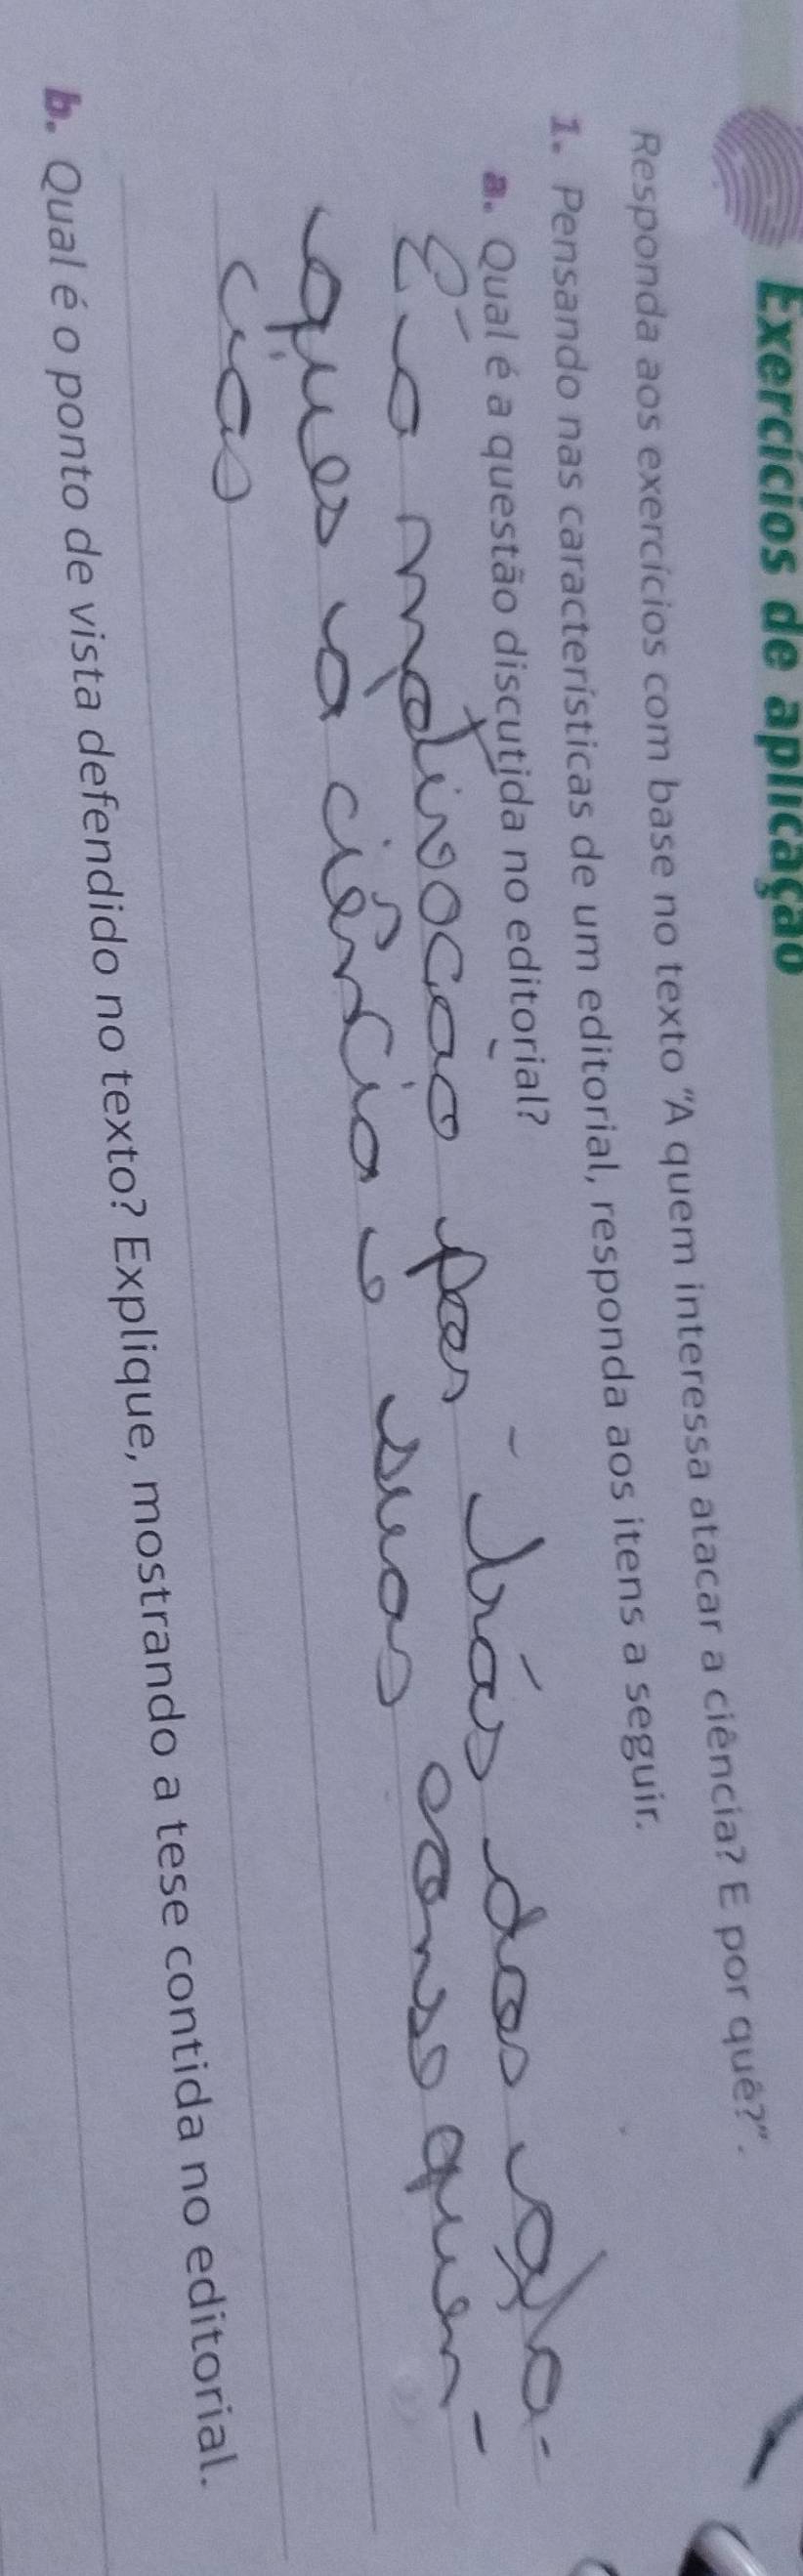 Exercícios de aplicação
Responda aos exercícios com base no texto "A quem interessa atacar a ciência? E por quê?".
1. Pensando nas características de um editorial, responda aos itens a seguir.
a. Qual é a questão discutida no editorial?
É a motivação por trás dos ata-
ques à ciência e suas consequên-
cias
b. Qual é o ponto de vista defendido no texto? Explique, mostrando a tese contida no editorial.